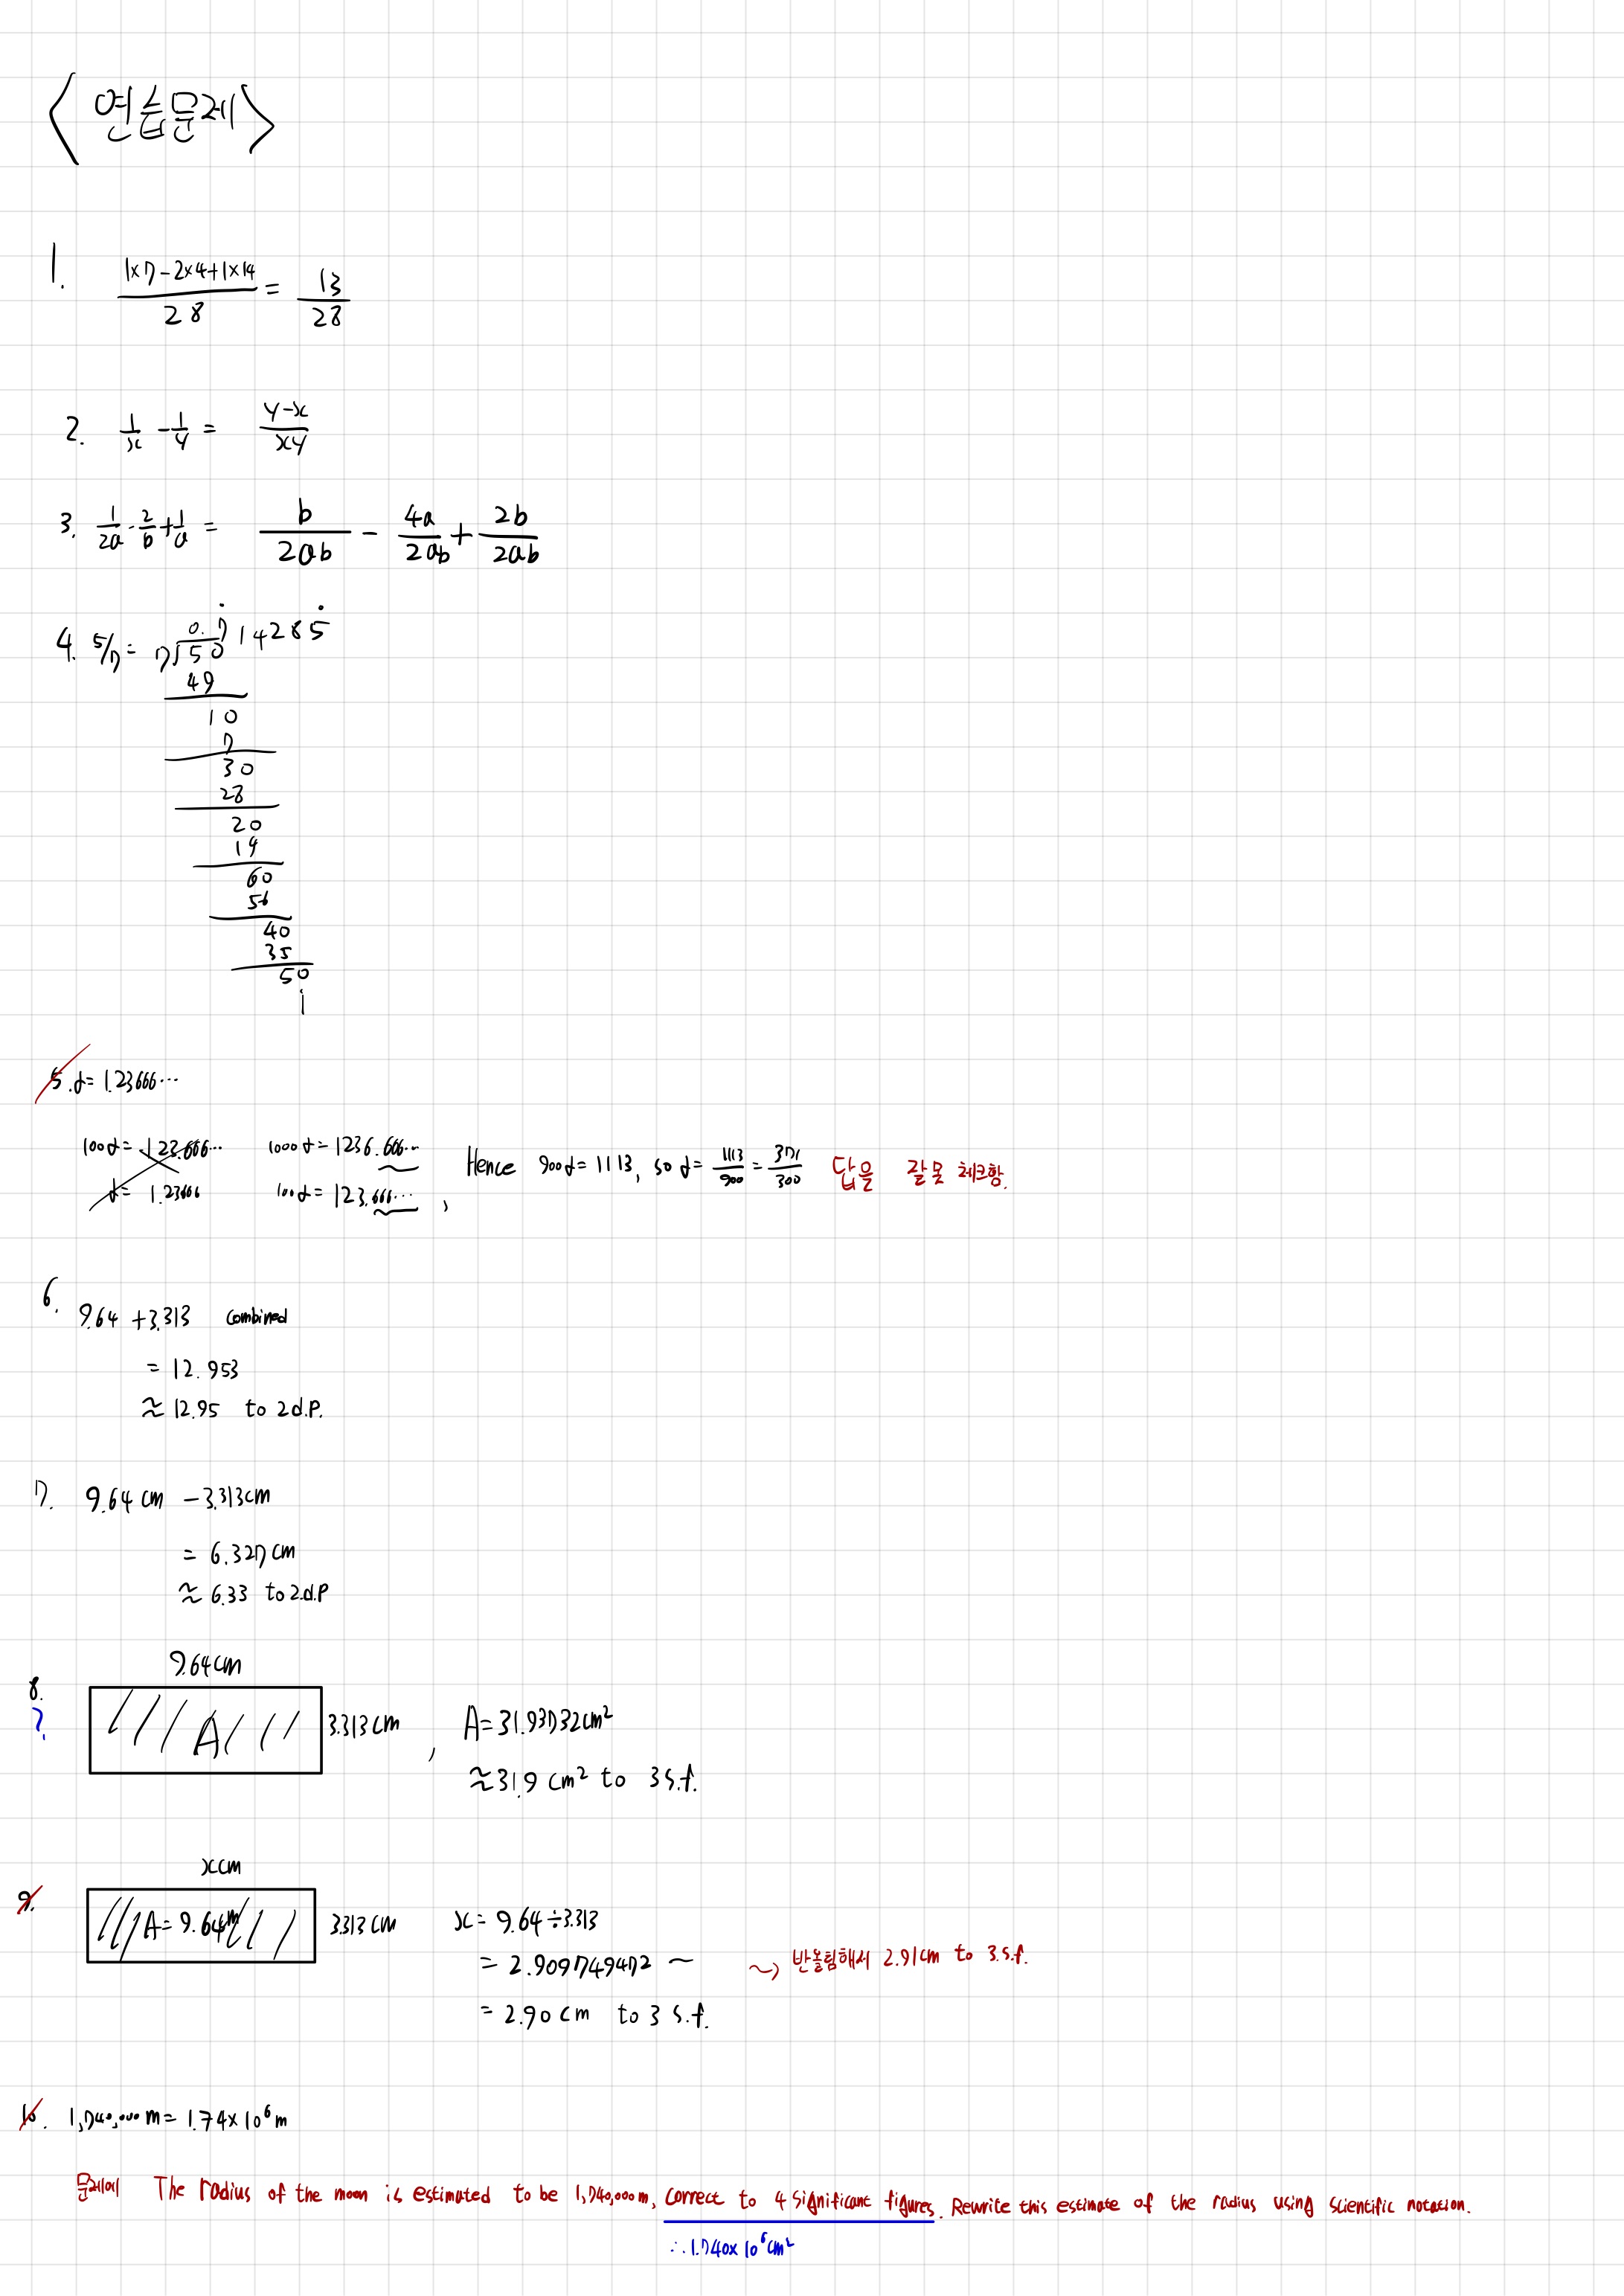 <연습문제>
1. (1×7-2×4+1×14)/28 = 13/28
2. 1/x - 1/y = (y-x)/xy
3. 1/2a - 2/b + 1/a = b/2ab - 4a/2ab + 2b/2ab
4. 5/7 = 7√50 0.7̇14285̇
49
10
7
30
28
20
14
60
56
40
35
50
⋮
5. α = 1.23666⋯
100α = 123.666⋯ 1000α = 1236.666⋯
α = 1.23666 100α = 123.666⋯ , Hence 900α = 1113, so α = 1113/900 = 371/300 답을 잘못 체크함.
6. 9.64 + 3.313 combined
= 12.953
≈ 12.95 to 2d.p.
7. 9.64 cm - 3.313cm
= 6.327 cm
≈ 6.33 to 2.d.p
9.64cm
8. ? A 3.313 cm , A = 31.93732 cm²
≈ 31.9 cm² to 3 s.f.
x cm
9. A = 9.64m 3.313 cm x = 9.64 ÷ 3.313
= 2.909749472 ~ ~> 반올림해서 2.91cm to 3.s.f.
= 2.90 cm to 3 s.f.
10. 1,740,000 m = 1.74 × 10⁶ m
문제에 The radius of the moon is estimated to be 1,740,000 m, correct to 4 significant figures. Rewrite this estimate of the radius using scientific notation.
∴ 1.740 × 10⁶ cm²